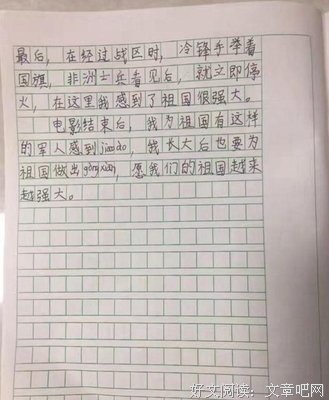 最后，在经过战区时，冷锋手举着
国旗，非洲士兵看见后，就立即停
火，在这里我感到了祖国很强大。
电影结束后，我为祖国有这样
的军人感到jiāoào，我长大后也要为
祖国做出gòngxiàn，愿我们的祖国越来
越强大。
好文阅读：文章吧网